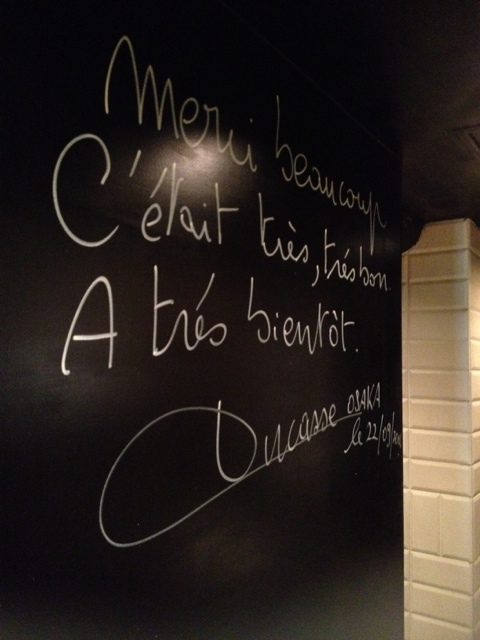 Merci beaucoup
C'était très, trés bon.
A trés bientôt.
Ducasse OSAKA
le 22/09/